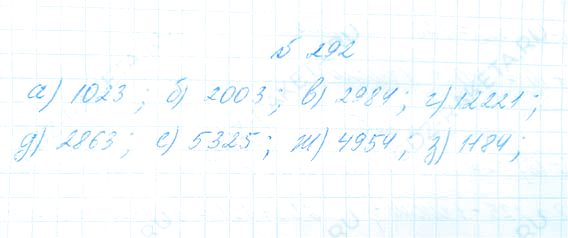 № 292
а) 1023; б) 2003; в) 2984; г) 12221;
д) 2863; е) 5325; ж) 4954; з) 1184;